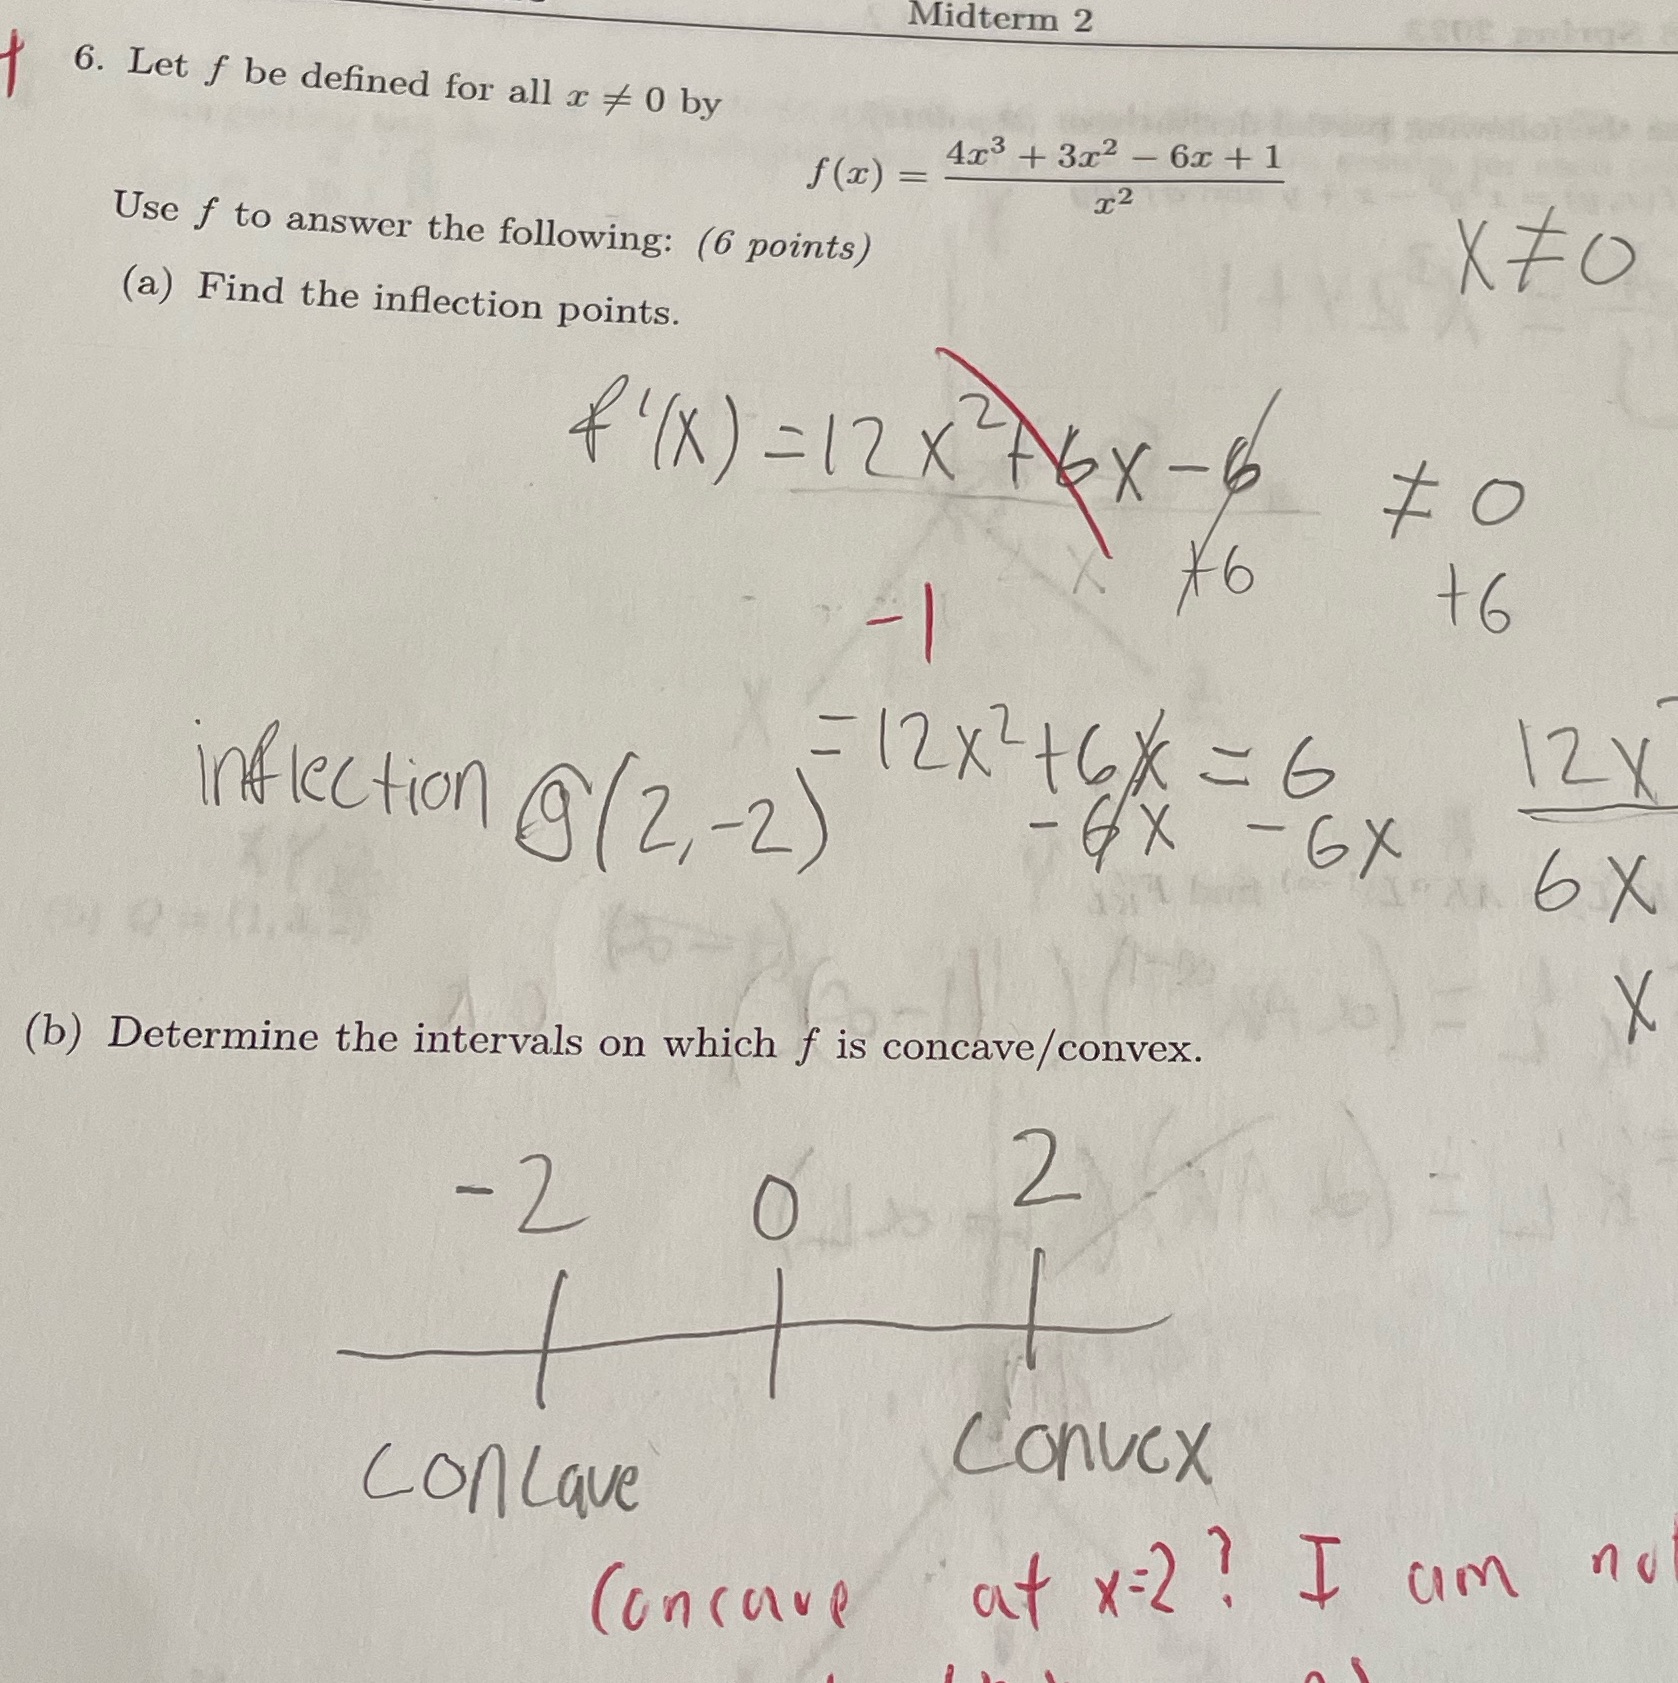 Midterm 2
6. Let f be defined for all x ≠ 0 by
f(x) = (4x³ + 3x² − 6x + 1) / x²
x ≠ 0
Use f to answer the following: (6 points)
(a) Find the inflection points.
f'(x) = 12x² + 6x − 6 ≠ 0
+6 +6
-1
= 12x² + 6x = 6
- 6x - 6x
inflection @ (2, -2)
12x
6x
x
(b) Determine the intervals on which f is concave/convex.
-2 0 2
concave convex
Concave at x=2? I am